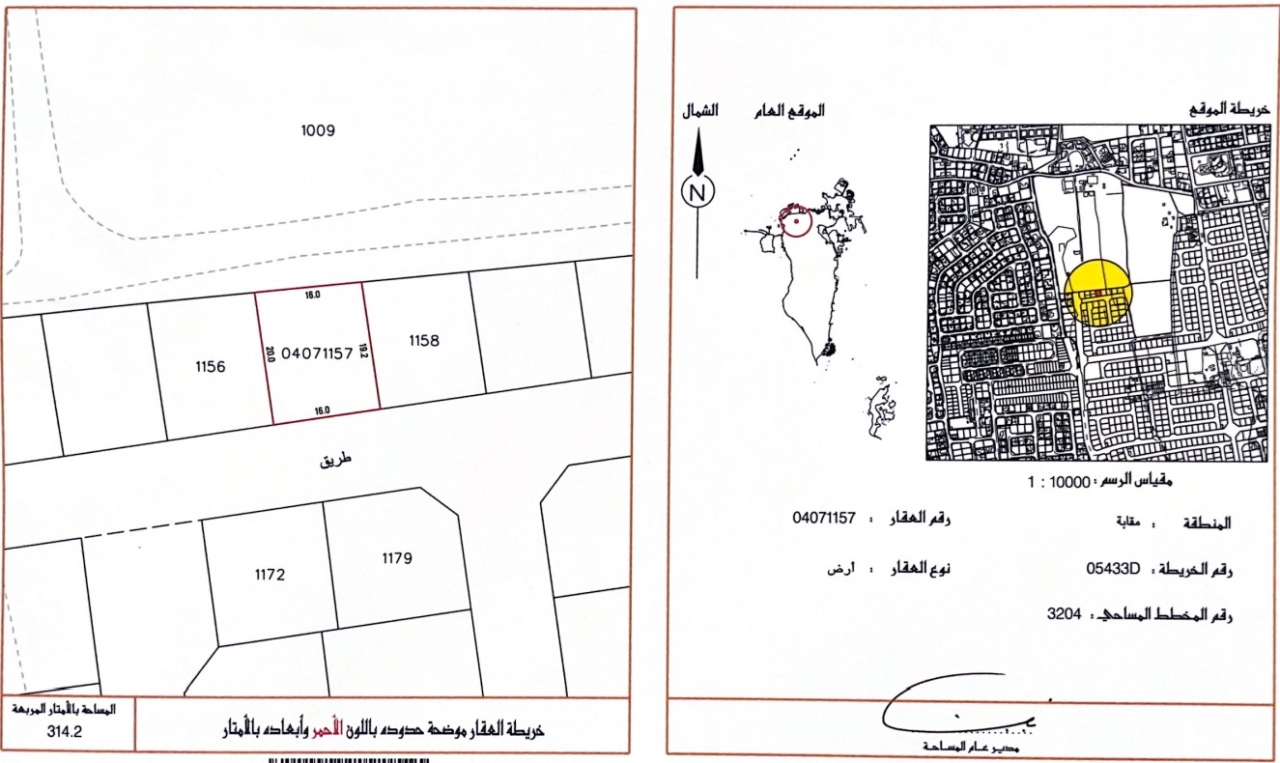 1009
16.0
20.0
04071157
19.2
1156
1158
16.0
طريق
1172
1179
المساحة بالأمتار المربعة
314.2
خريطة العقار موضحة حدوده باللون الأحمر وأبعاده بالأمتار
خريطة الموقع
الموقع العام
الشمال
N
مقياس الرسم : 10000 : 1
المنطقة : مقابة
رقم العقار : 04071157
رقم الخريطة : 05433D
نوع العقار : أرض
رقم المخطط المساحي : 3204
مدير عام المساحة